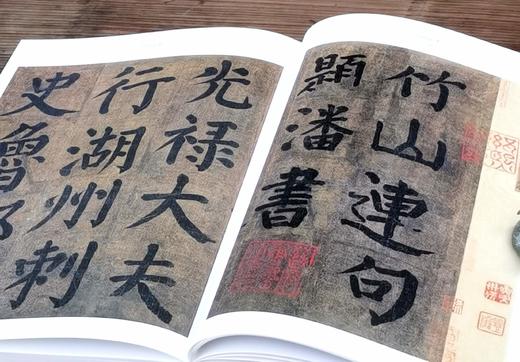 竹山連句
題潘書
光禄大夫
行湖州刺
史魯